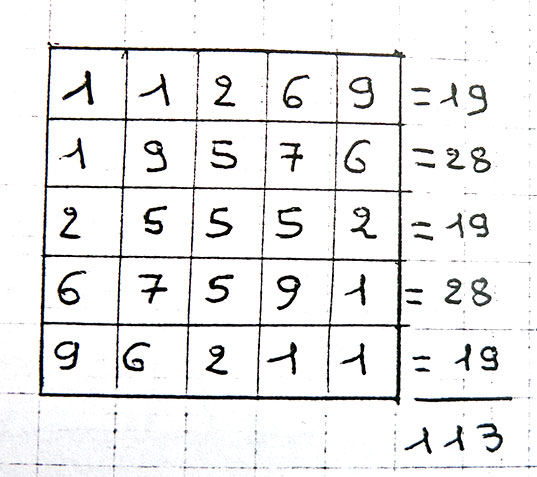 1 1 2 6 9 = 19
1 9 5 7 6 = 28
2 5 5 5 2 = 19
6 7 5 9 1 = 28
9 6 2 1 1 = 19
113